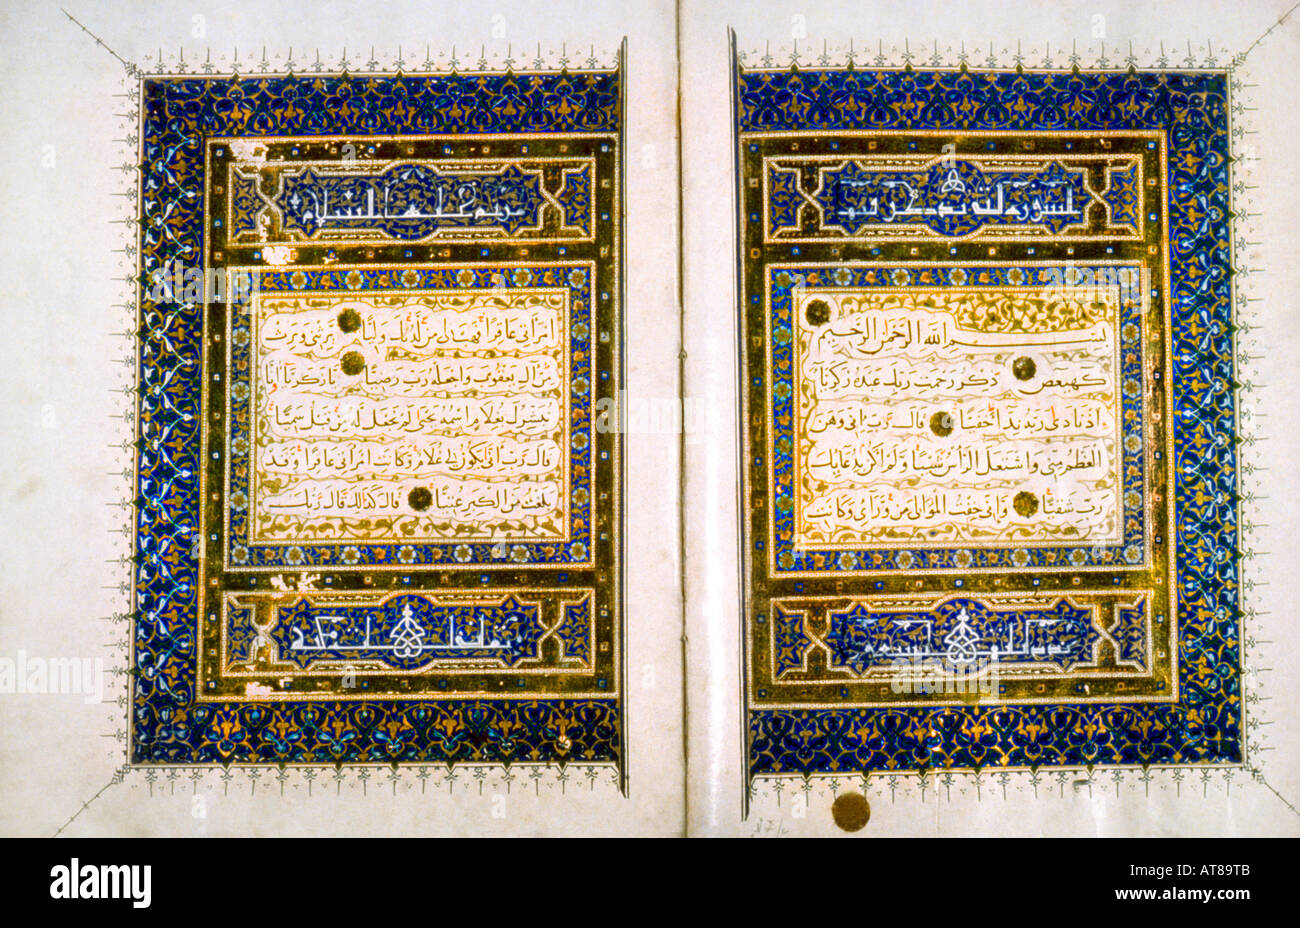 السورة التي يذكر فيها
بسم الله الرحمن الرحيم
كهيعص ذكر رحمت ربك عبده زكريا
اذ نادى ربه نداء خفيا قال رب اني وهن
العظم مني واشتعل الرأس شيبا ولم اكن بدعائك
رب شقيا واني خفت الموالي من ورآئ وكانت
مريم عليها السلام
امرأتي عاقرا فهب لي من لدنك وليا يرثني ويرث
من آل يعقوب واجعله رب رضيا يا زكريا انا
نبشرك بغلام اسمه يحيى لم نجعل له من قبل سميا
قال رب انى يكون لي غلام وكانت امرأتي عاقرا وقد
بلغت من الكبر عتيا قال كذلك قال ربك
alamy
alamy
alamy
Image ID: AT89TB
www.alamy.com